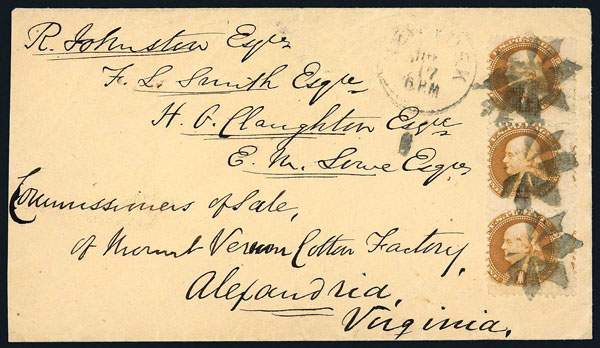 R. Johnston Esqre
F. L. Smith Esqre
H. O. Claughton Esqre
E. M. Lowe Esqre
Commissioners of Sale,
of Mount Vernon Cotton Factory,
Alexandria,
Virginia.
YORK
17
6 PM